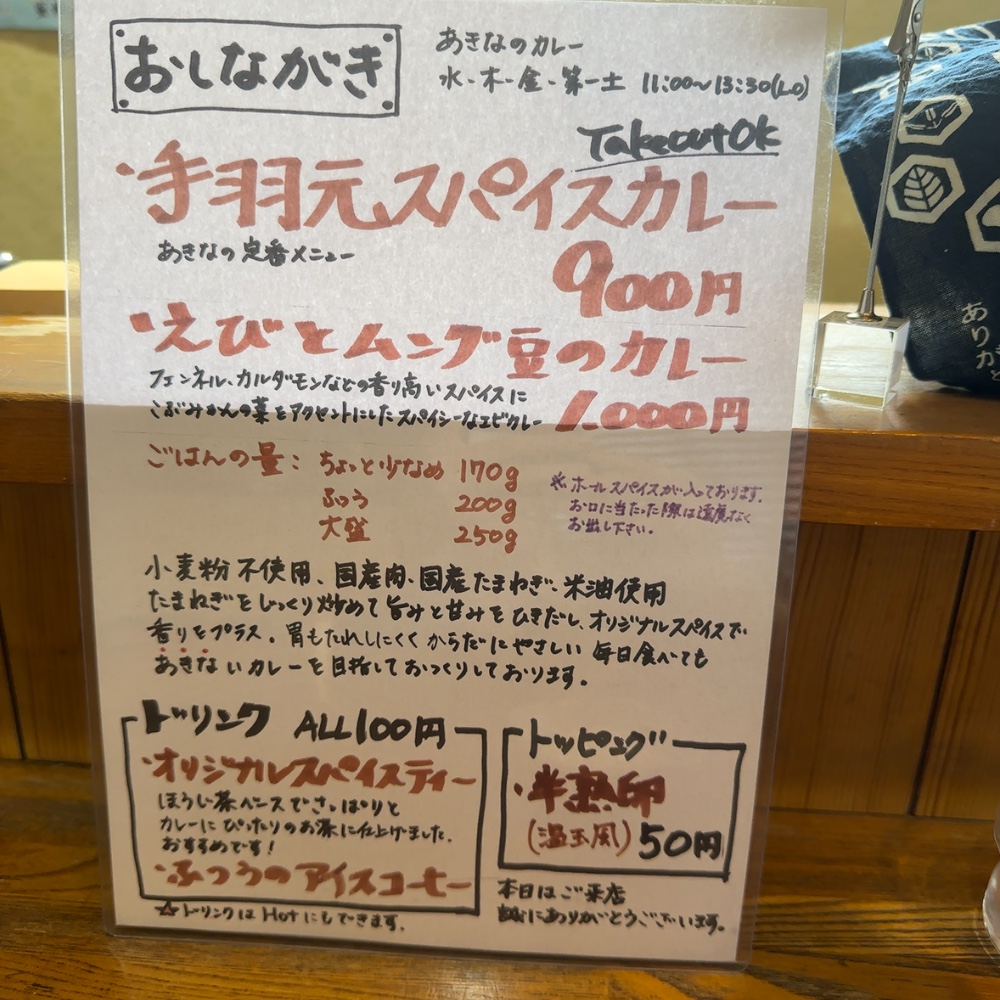 おしながき
あきなのカレー
水・木・金・第一土 11:00〜13:30(LO)
Takeout OK
・手羽元スパイスカレー
あきなの定番メニュー
900円
・えびとムング豆のカレー
フェンネル、カルダモンなどの香り高いスパイスに
こぶみかんの葉をアクセントにしたスパイシーなエビカレー
1.000円
ごはんの量: ちょっと少なめ 170g
ふつう 200g
大盛 250g
※ホールスパイスが入っております。
お口に当たった際は遠慮なく
お出し下さい。
小麦粉不使用、国産肉・国産たまねぎ・米油使用
たまねぎをじっくり炒めて旨みと甘みをひきだし、オリジナルスパイスで
香りをプラス。胃もたれしにくくからだにやさしい 毎日食べても
あきないカレーを目指しておつくりしております。
ドリンク ALL100円
・オリジナルスパイスティー
ほうじ茶ベースでさっぱりと
カレーにぴったりのお茶に仕上げました。
おすすめです!
・ふつうのアイスコーヒー
☆ドリンクはHotにもできます。
トッピング
・半熟卵
(温玉風) 50円
本日はご来店
誠にありがとうございます。